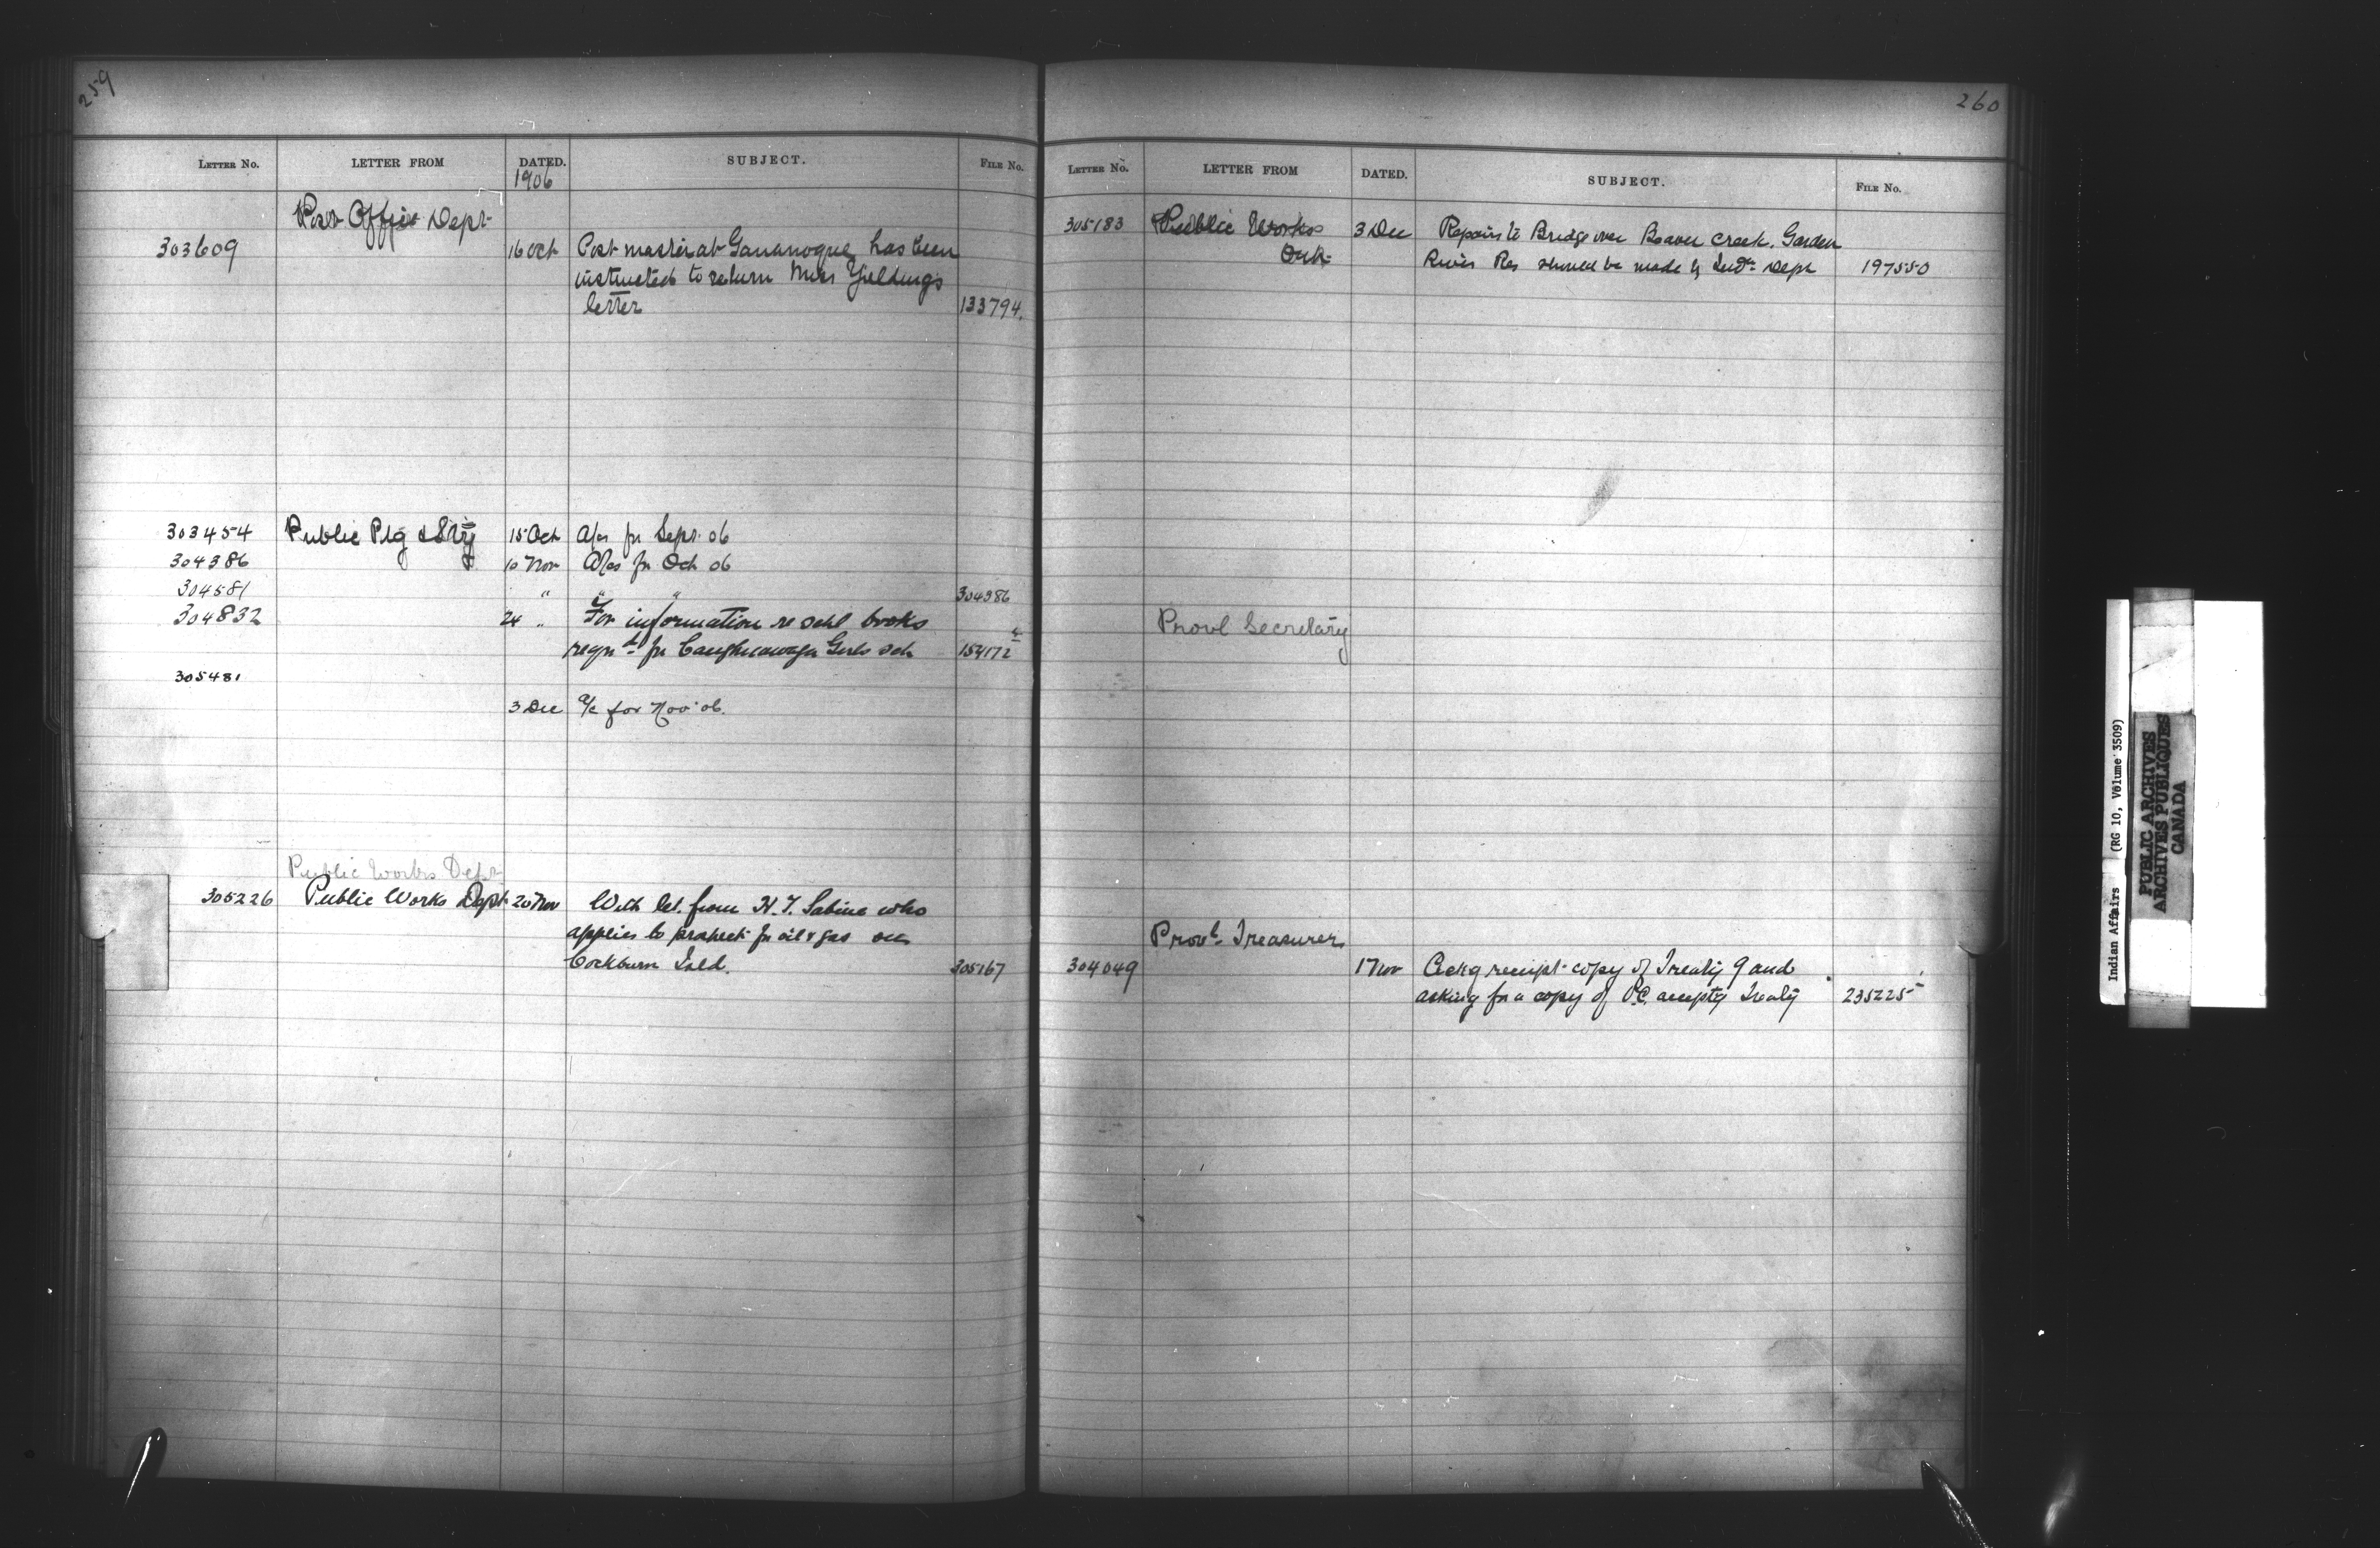 259
LETTER No. LETTER FROM DATED. SUBJECT. FILE No.
1906
Post Office Dept
303609 16 Oct Post master at Gananoque has been
instructed to return Miss Yieldings
letter 133794.
303454 Public Ptg & Sty 15 Oct A/cs for Sept. 06
304386 10 Nov A/cs for Oct 06
304581 " " " 304386
304832 24 " For information re schl books
reqd for Caughnawaga Girls sch 154172
305481
3 Dec a/c for Nov. 06.
Public Works Dept
305226 Public Works Dept 20 Nov With let. from H.T. Sabine who
applies to prospect for oil & gas on
Cockburn Isld. 305167
260
LETTER No. LETTER FROM DATED. SUBJECT. FILE No.
305183 Public Works 3 Dec Repairs to Bridge over Beaver Creek. Garden
Ont. River Res should be made by Indn Dept 197550
Provl Secretary
Provl Treasurer
304049 1 Nov Ackg receipt copy of Treaty 9 and
asking for a copy of P.C. acceptg Treaty 235225
Indian Affairs (RG 10, Volume 3509)
PUBLIC ARCHIVES
ARCHIVES PUBLIQUES
CANADA